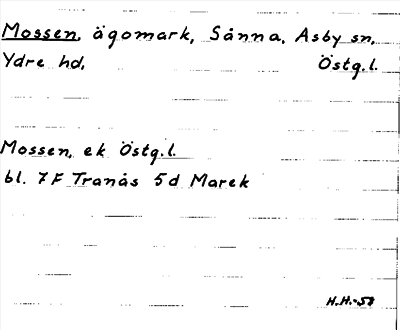 Mossen, ägomark, Sånna, Asby sn,
Ydre hd, Östg.l.
Mossen, ek Östg.l.
bl. 7F Tranås 5d Marek
H.H.-58